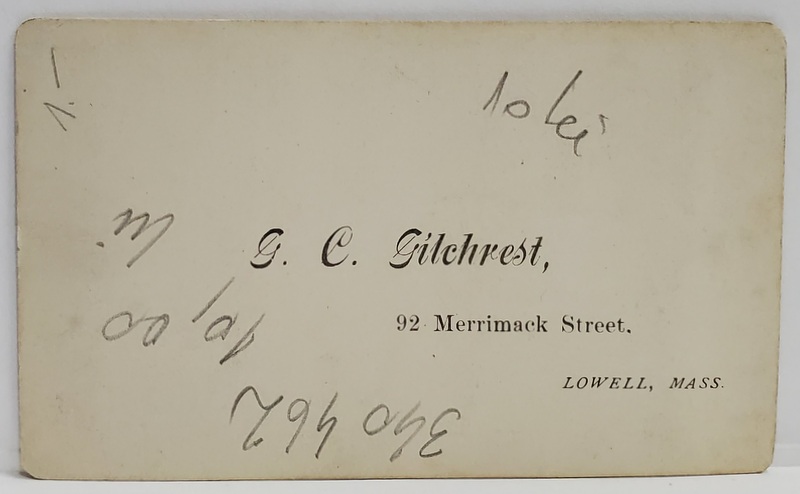 1.–
10 lei
G. C. Gilchrest,
92 Merrimack Street.
LOWELL, MASS.
10,00
340 462